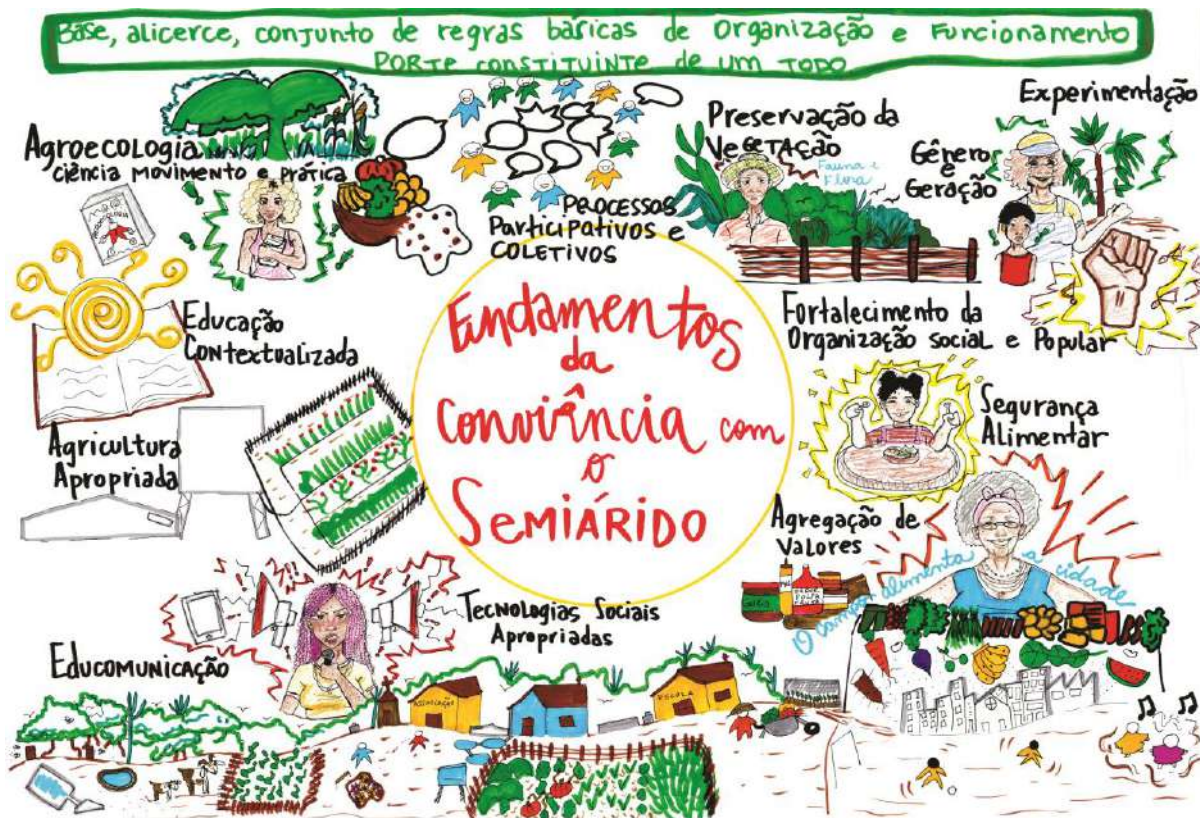 Base, alicerce, conjunto de regras básicas de Organização e Funcionamento
PORTE constituinte de um TODO
Agroecologia
ciência movimento e prática
PROCESSOS
Participativos e
COLETIVOS
Preservação da
VEGETAÇÃO
Fauna e
Flora
Gênero
e
Geração
Experimentação
Educação
Contextualizada
Fundamentos
da
convivência com
o
SEMIÁRIDO
Fortalecimento da
Organização social e Popular
Agricultura
Apropriada
Segurança
Alimentar
Agregação de
Valores
O campo alimenta a cidade
Educomunicação
Tecnologias Sociais
Apropriadas
ASSOCIAÇÃO
ESCOLA